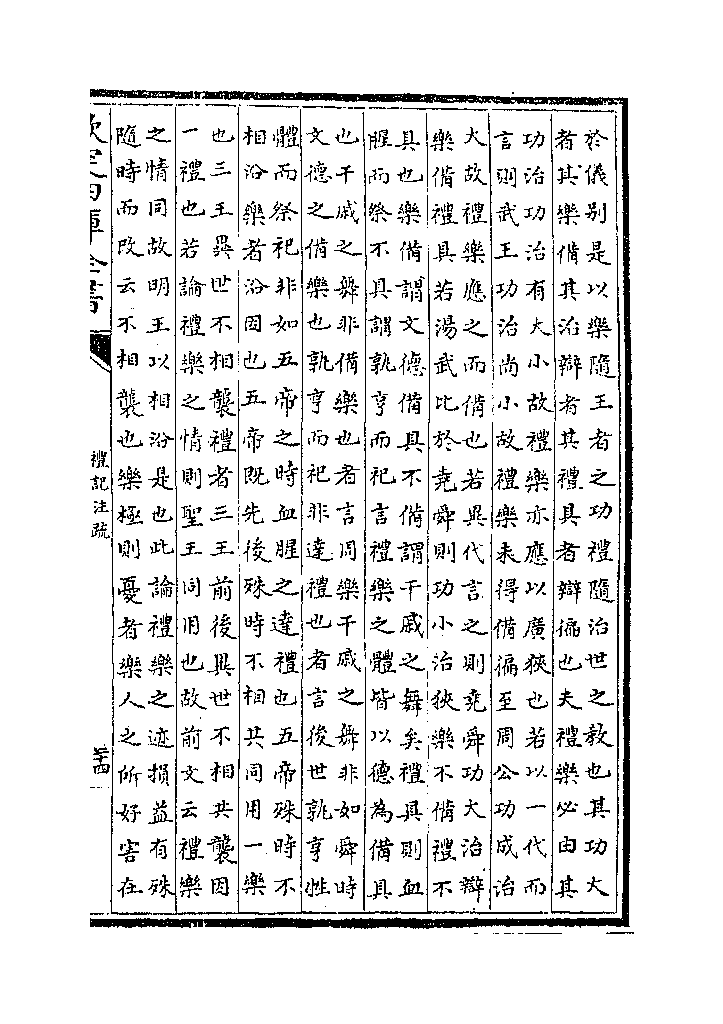 於儀别是以樂隨王者之功禮隨治世之教也其功大
者其樂備其治辯者其禮具者辯徧也夫禮樂必由其
功治功治有大小故禮樂亦應以廣狹也若以一代而
言則武王功治尚小故禮樂未得備徧至周公功成治
大故禮樂應之而備也若異代言之則堯舜功大治辯
樂備禮具若湯武比於堯舜則功小治狹樂不備禮不
具也樂備謂文德備具不備謂干戚之舞矣禮具則血
腥而祭不具謂孰亨而祀言禮樂之體皆以德為備具
也干戚之舞非備樂也者言周樂干戚之舞非如舜時
文德之備樂也孰亨而祀非達禮也者言後世孰亨牲
體而祭祀非如五帝之時血腥之達禮也五帝殊時不
相沿樂者沿因也五帝既先後殊時不相共同用一樂
也三王異世不相襲禮者三王前後異世不相共襲因
一禮也若論禮樂之情則聖王同用也故前文云禮樂
之情同故明王以相沿是也此論禮樂之迹損益有殊
隨時而改云不相襲也樂極則憂者樂人之所好害在
欽定四庫全書
禮記注疏